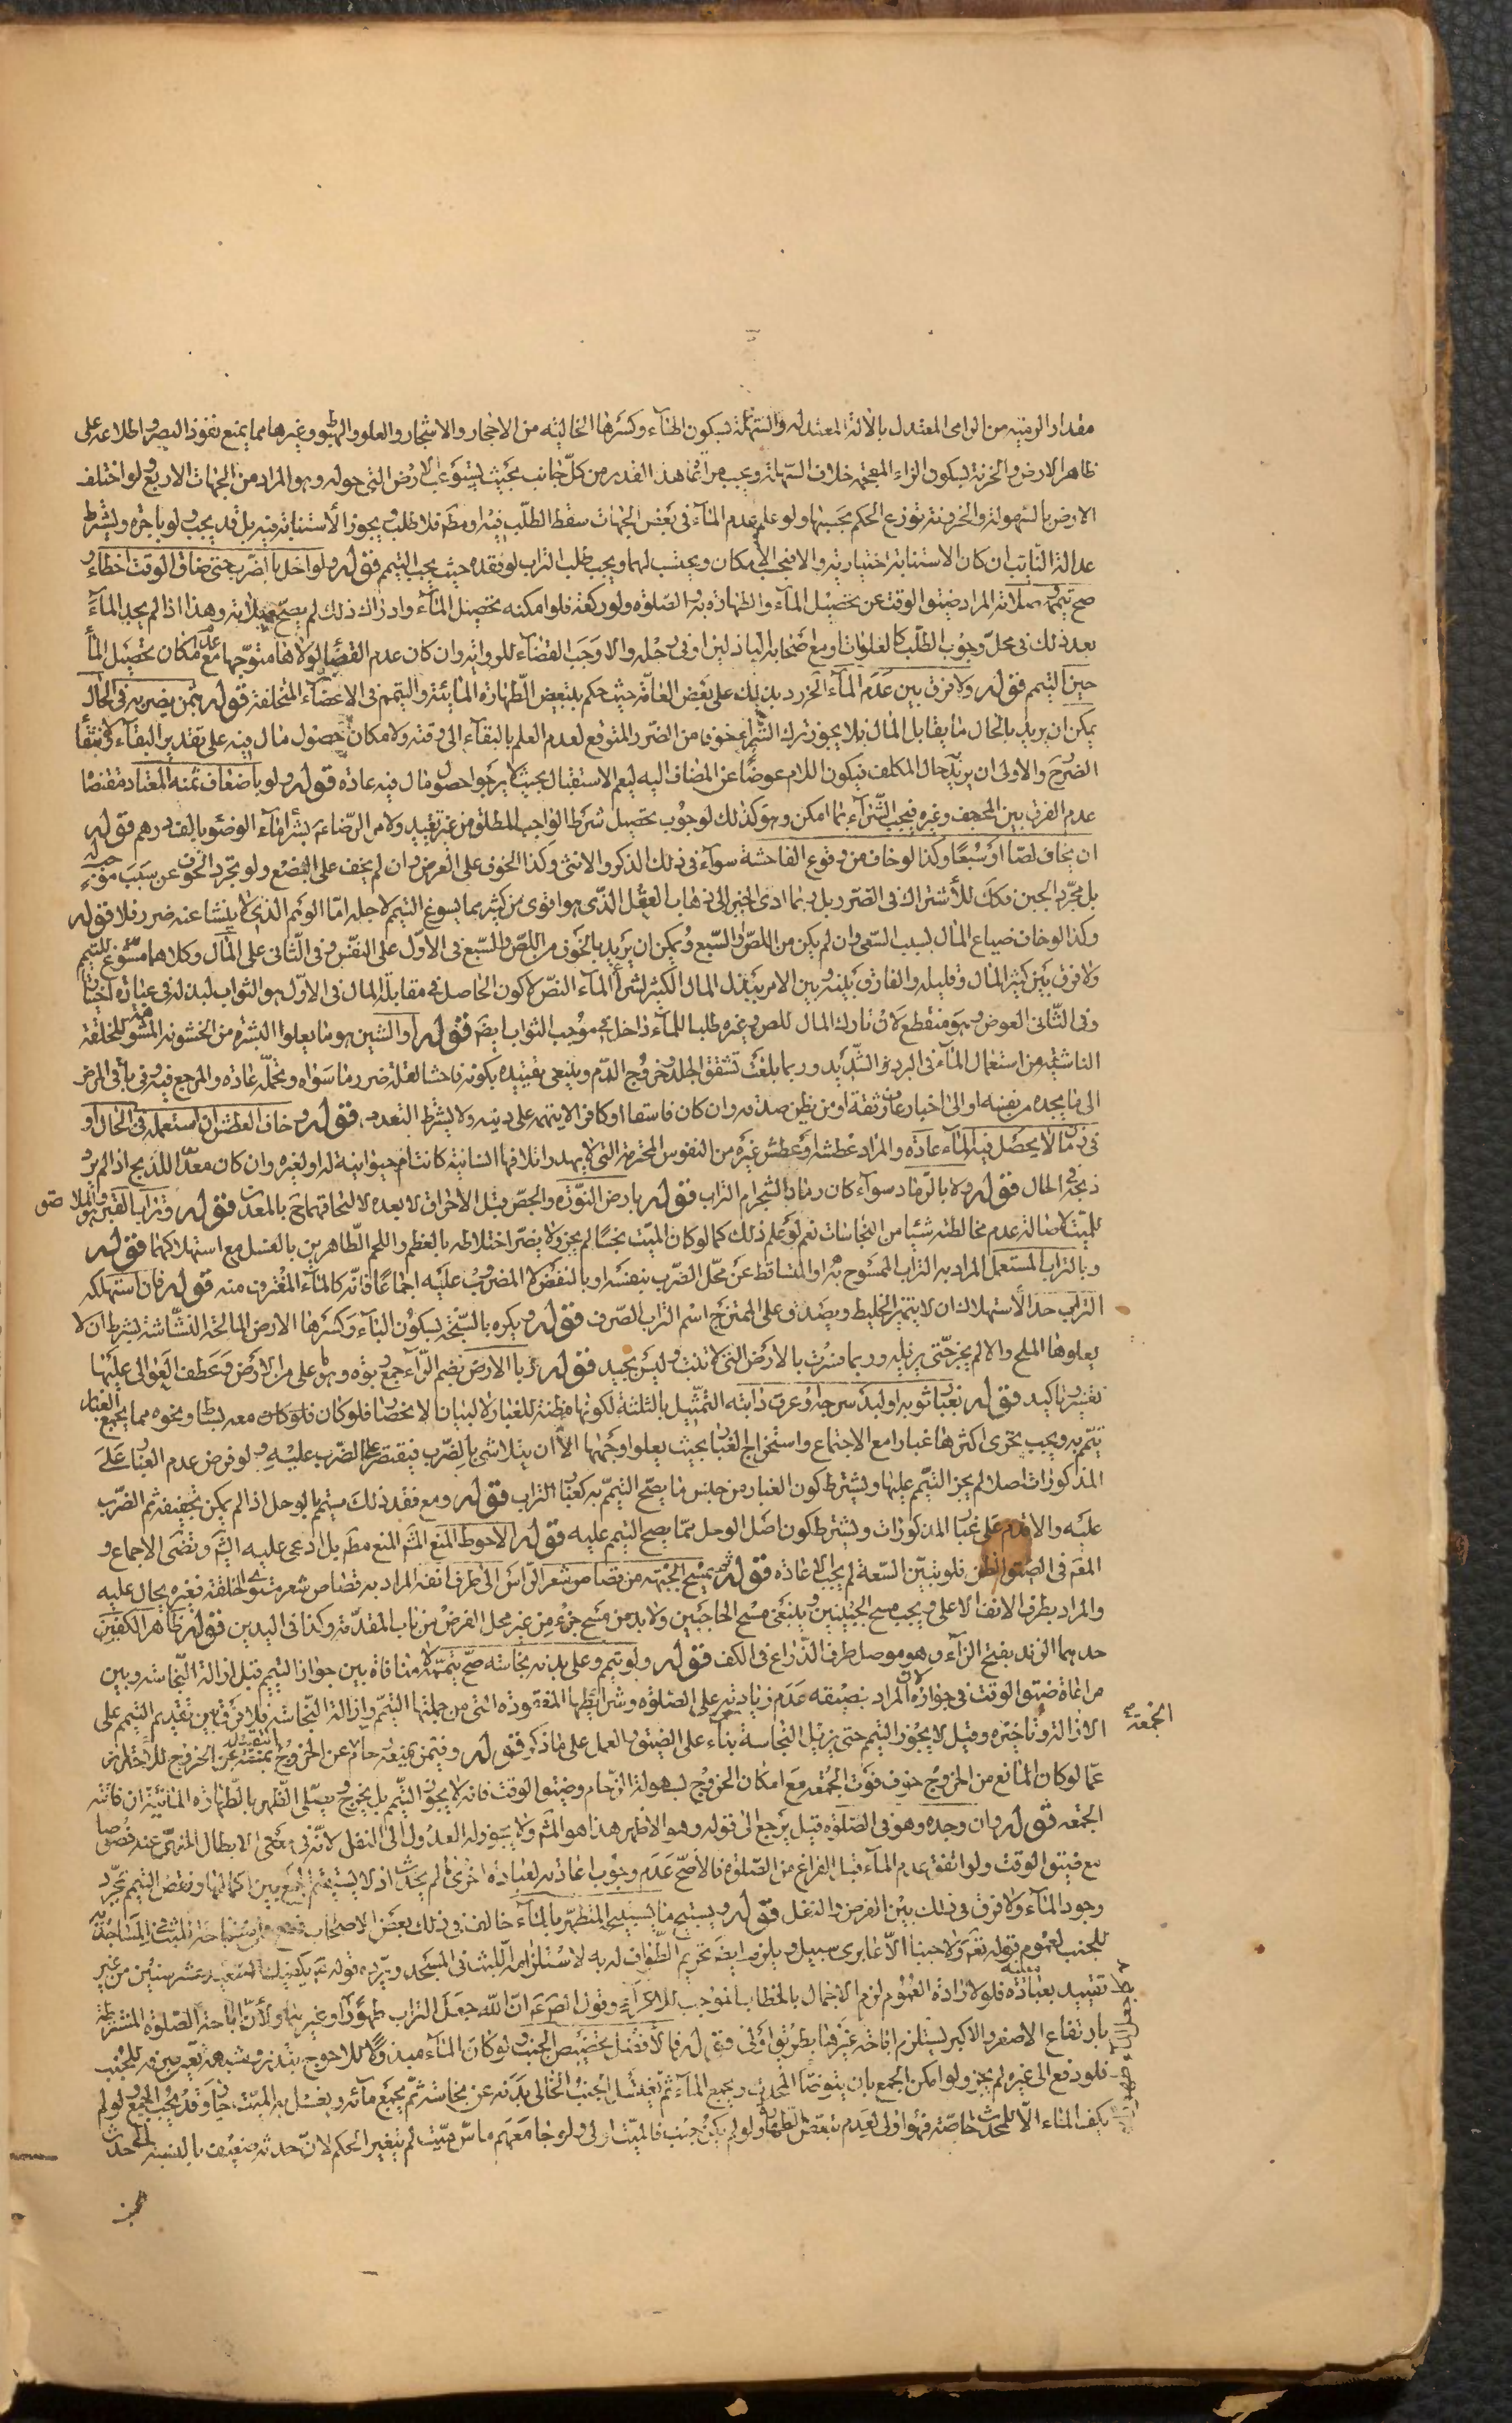 مقدار الرمية من الرامى المعتدل بالآلة المعتدلة والسهلة بسكون الهاء وكسرها الخالية من الاحجار والاشجار والعلو والهبوط وغيرها مما يمنع نفوذ البصر واطلاعه على
ظاهر الارض والحزنة بسكون الزاء المعجمة خلاف السهلة ويجب مراعاة هذا القدر من كل جانب بحيث يستوعب الارض التى حوله وهو المراد من الجهات الاربع ولو اختلف
الارض بالسهولة والحزونة توزع الحكم بحسبها ولو علم عدم الماء فى بعض الجهات سقط الطلب فيه او مطه فلا طلب ويجوز الاستنابة فيه بل قد يجب ولو باجرة ويشترط
عدالة النائب ان كان الاستنابة اختيارية والا فبحسب الامكان ويحتسب لهما ويجب طلب التراب لو فقده حيث يجب التيمم قوله ولو اخل بالضرب حتى ضاق الوقت اخطاء و
صح تيممه وصلاته المراد ضيق الوقت عن تحصيل الماء والطهارة به والصلوة ولو ركعة فلو امكنه تحصيل الماء وادراك ذلك لم يصح صلاته وهذا اذا لم يجد الماء
بعد ذلك فى محل وجوب الطلب كالغلوات او مع اصحابه الباذلين او فى رحله والا وجب القضاء للرواية وان كان عدم القضاء لولاها متوجها مع عدم امكان تحصيل الماء
حين التيمم قوله ولا فرق بين عدم الماء الخ رد بذلك على بعض العامة حيث حكم بتبعيض الطهارة المائية والتيمم فى الاعضاء المتخلفة قوله بثمن يضر به فى الحال
يمكن ان يريد بالحال ما يقابل المآل فلا يجوز ترك الشراء خوفا من الضرر المتوقع لعدم العلم بالبقاء الى وقته ولامكان حصول مال فيه على تقدير البقاء
الضرر والاولى ان يريد حال المكلف فيكون اللام عوضا عن المضاف اليه ليعم الاستقبال بحيث لا يرجوا حصول مال فيه عادة قوله ولو باضعاف ثمنه المعتاد مقتضاه
عدم الفرق بين المجحف وغيره فيجب الشراء بما امكن وهو كذلك لوجوب تحصيل شرط الواجب المطلق من غير تقييد ولامر الرضاء بشراء ماء الوضوء بالف درهم قوله
ان يخاف لصا او سبعا وكذا لو خاف من وقوع الفاحشة سواء فى ذلك الذكر والانثى وكذا الخوف على العرض وان لم يخف على البضع ولو تجرد الخوف عن سبب موجب له
بل مجرد الجبن فكك للاشتراك فى الضرر بل ربما ادى الجبن الى ذهاب العقل الذى هو اقوى من كثير مما يسوغ التيمم لاجله اما الوهم الذى لا ينشا عنه ضرر فلا قوله
وكذا لو خاف ضياع المال بسبب السعى وان لم يكن من اللص والسبع ويمكن ان يريد بالخوف من اللص والسبع فى الاول على النفس وفى الثانى على المال وكلاهما مسوغ للتيمم
ولا فرق بين كثير المال وقليله والفارق بينه وبين الامر ببذل المال الكثير لشراء الماء النص لا كون الحاصل فى مقابلة المال فى الاول هو الثواب لبذله فى عبادة اختيارا
وفى الثانى العوض وهو منقطع لان تارك المال للص وغيره طلبا للماء داخل فى موجب الثواب ايضا قوله او الشين هو ما يعلوا البشرة من الخشونة المشوهة للخلقة
الناشئة من استعمال الماء فى البرد الشديد وربما بلغت تشقق الجلد وخروج الدم وينبغى تقييده بكونه فاحشا لقلة ضرر ما سواه وتحمله عادة والمرجع فيه وفى باقى المرض
الى ما يجده من نفسه او الى اخبار عارف ثقة او من يظن صدقه وان كان فاسقا او كافرا لا يتهمه على دينه ولا يشترط التعدد قوله خاف العطش ان استعمله فى الحال او
فى زمان لا يحصل فيه الماء عادة والمراد عطشه او عطش غيره من النفوس المحترمة التى لا يهدر اتلافها انسانية كانت ام حيوانية له او لغيره وان كان معدا للذبح اذا لم يرد
ذبحه فى الحال قوله ولا بالرماد سواء كان رماد الشجر ام التراب قوله بارض النورة والجص قبل الاحراق لا بعده لالتحاقهما ح بالمعدن قوله وتراب القبر الملاصق
للميت لاصالة عدم مخالطته شيئا من النجاسات نعم لو علم ذلك كما لو كان الميت نجسا لم يجز ولا يضر اختلاطه بالعظم واللحم الطاهرين بالغسل مع استهلاكهما قوله
وبالتراب المستعمل المراد به التراب الممسوح به او المتساقط عن محل الضرب بنفسه او بالنفض لا المضروب عليه اجماعا فانه كالماء المغترف منه قوله فان استهلكه
التراب حد الاستهلاك ان لا يتميز الخليط ويصدق على الممتزج اسم التراب الصرف قوله ويكره بالسبخة بسكون الباء وكسرها الارض المالحة النشاشة بشرط ان لا
يعلوها الملح والا لم يجز حتى يزيله وربما فسرت بالارض التى لا تنبت وليس بجيد قوله ربا الارض بضم الراء جمع ربوة وهو ما على من الارض وعطف العوالى عليها
تفسير وتاكيد قوله بغبار ثوبه او لبد سرجه او عرف دابته التمثيل بالثلثة لكونها مظنة للغبار لا لبيان الانحصار فلو كان معه بساط ونحوه مما يجمع الغبار
تيمم به ويجب تحرى اكثرها غبارا مع الاجتماع واستخراج الغبار بحيث يعلوا وجهها الا ان يتلاشى بالضرب فيقتصر على الضرب عليه ولو فرض عدم الغبار على
المذكورات اصلا لم يجز التيمم عليها ويشترط كون الغبار من جنس ما يصح التيمم به كغبار التراب قوله ومع فقد ذلك يتيمم بالوحل اذا لم يمكن تجفيفه ثم الضرب
عليه والا قدم على غبار المذكورات ويشترط كون اصل الوحل مما يصح التيمم عليه قوله الاحوط المنع المنع مطه بل ادعى عليه الشيخ وتضى الاجماع و
المعتبر فى الضيق الظن فلو تبين السعة لم يجب الاعادة قوله ثم يمسح الجبهة من قصاص شعر الراس الى طرف انفه المراد به قصاص شعر مستوى الخلقة فغيره يحال عليه
والمراد بطرف الانف الاعلى ويجب مسح الجبينين وينبغى مسح الحاجبين ولا بد من مسح جزء من غير محل الفرض من باب المقدمة وكذا فى اليدين قوله ظاهر الكفين
حدهما الزند بفتح الزاء وهو موصل طرف الذراع فى الكف قوله ولو تيمم وعلى بدنه نجاسة صح تيممه لا منافاة بين جواز التيمم قبل ازالة النجاسة وبين
مراعاة ضيق الوقت فى جوازه لان المراد بضيقه عدم زيادته على الصلوة وشرايطها المفقودة التى من جملتها التيمم وازالة النجاسة فلا فرق بين تقديم التيمم على
الازالة وتاخيره وقيل لا يجوز التيمم حتى يزيل النجاسة بناء على الضيق والعمل على ما ذكر قوله وفيمن يمنعه زحام الجمعة عن الخروج التقييد بمنعه عن الخروج للاحتراز
عما لو كان المانع من الخروج خوف فوت الجمعة مع امكان الخروج لسهولة الزحام وضيق الوقت فانه لا يجوز التيمم بل يخرج ويصلى الظهر بالطهارة المائية ان فاتته
الجمعة قوله وان وجده وهو فى الصلوة قيل يرجع الى قوله وهو الاظهر هذا هو المشهور ولا يسوغ له العدول الى النفل لانه فى معنى الابطال المنهى عنه خصوصا
مع ضيق الوقت ولو اتفق عدم الماء قبل الفراغ من الصلوة فالاصح عدم وجوب اعادته لعبادة اخرى ما لم يحدث اذ لا يستقيم الجمع بين اكمالها ونقض التيمم بمجرد
وجود الماء ولا فرق فى ذلك بين الفرض والنفل قوله ويستبيح ما يستبيحه المتطهر بالماء خالف فى ذلك بعض الاصحاب اللبث فى المساجد
للجنب لعموم قوله تعه ولا جنبا الا عابرى سبيل ويلزمه ايضا تحريم الطواف له به لاستلزامه اللبث فى المسجد ويرده قوله ص يكفيك الصعيد عشر سنين من غير
تقييد بعبادة فلو لا ارادة العموم لزم الاجمال بالخطاب وقول الصه ان الله جعل التراب طهورا وغيرهما ولأن اباحة الصلوة المشترطة
بارتفاع الاصغر والاكبر يستلزم اباحة غيرها بطريق اولى قوله فالافضل تخصيص الجنب ولو كان الماء مبذولا للاحوج
فلو دفع الى غيره لم يجز ولو امكن الجمع بان يتوضا المحدث ويجمع الماء ثم يغتسل الجنب الخالى بدنه عن نجاسة ثم يجمع مائه ويغسل به الميت جاز وقد يجب الجمع ولو لم
يكف الماء الا للمحدث خاصة فهو اولى لعدم تبعض الطهارة ولو لم يكن جنب فالميت اولى ولو جامعهم ماس ميت لم يتغير الحكم لان حدثه ضعيف بالنسبة الى حدث